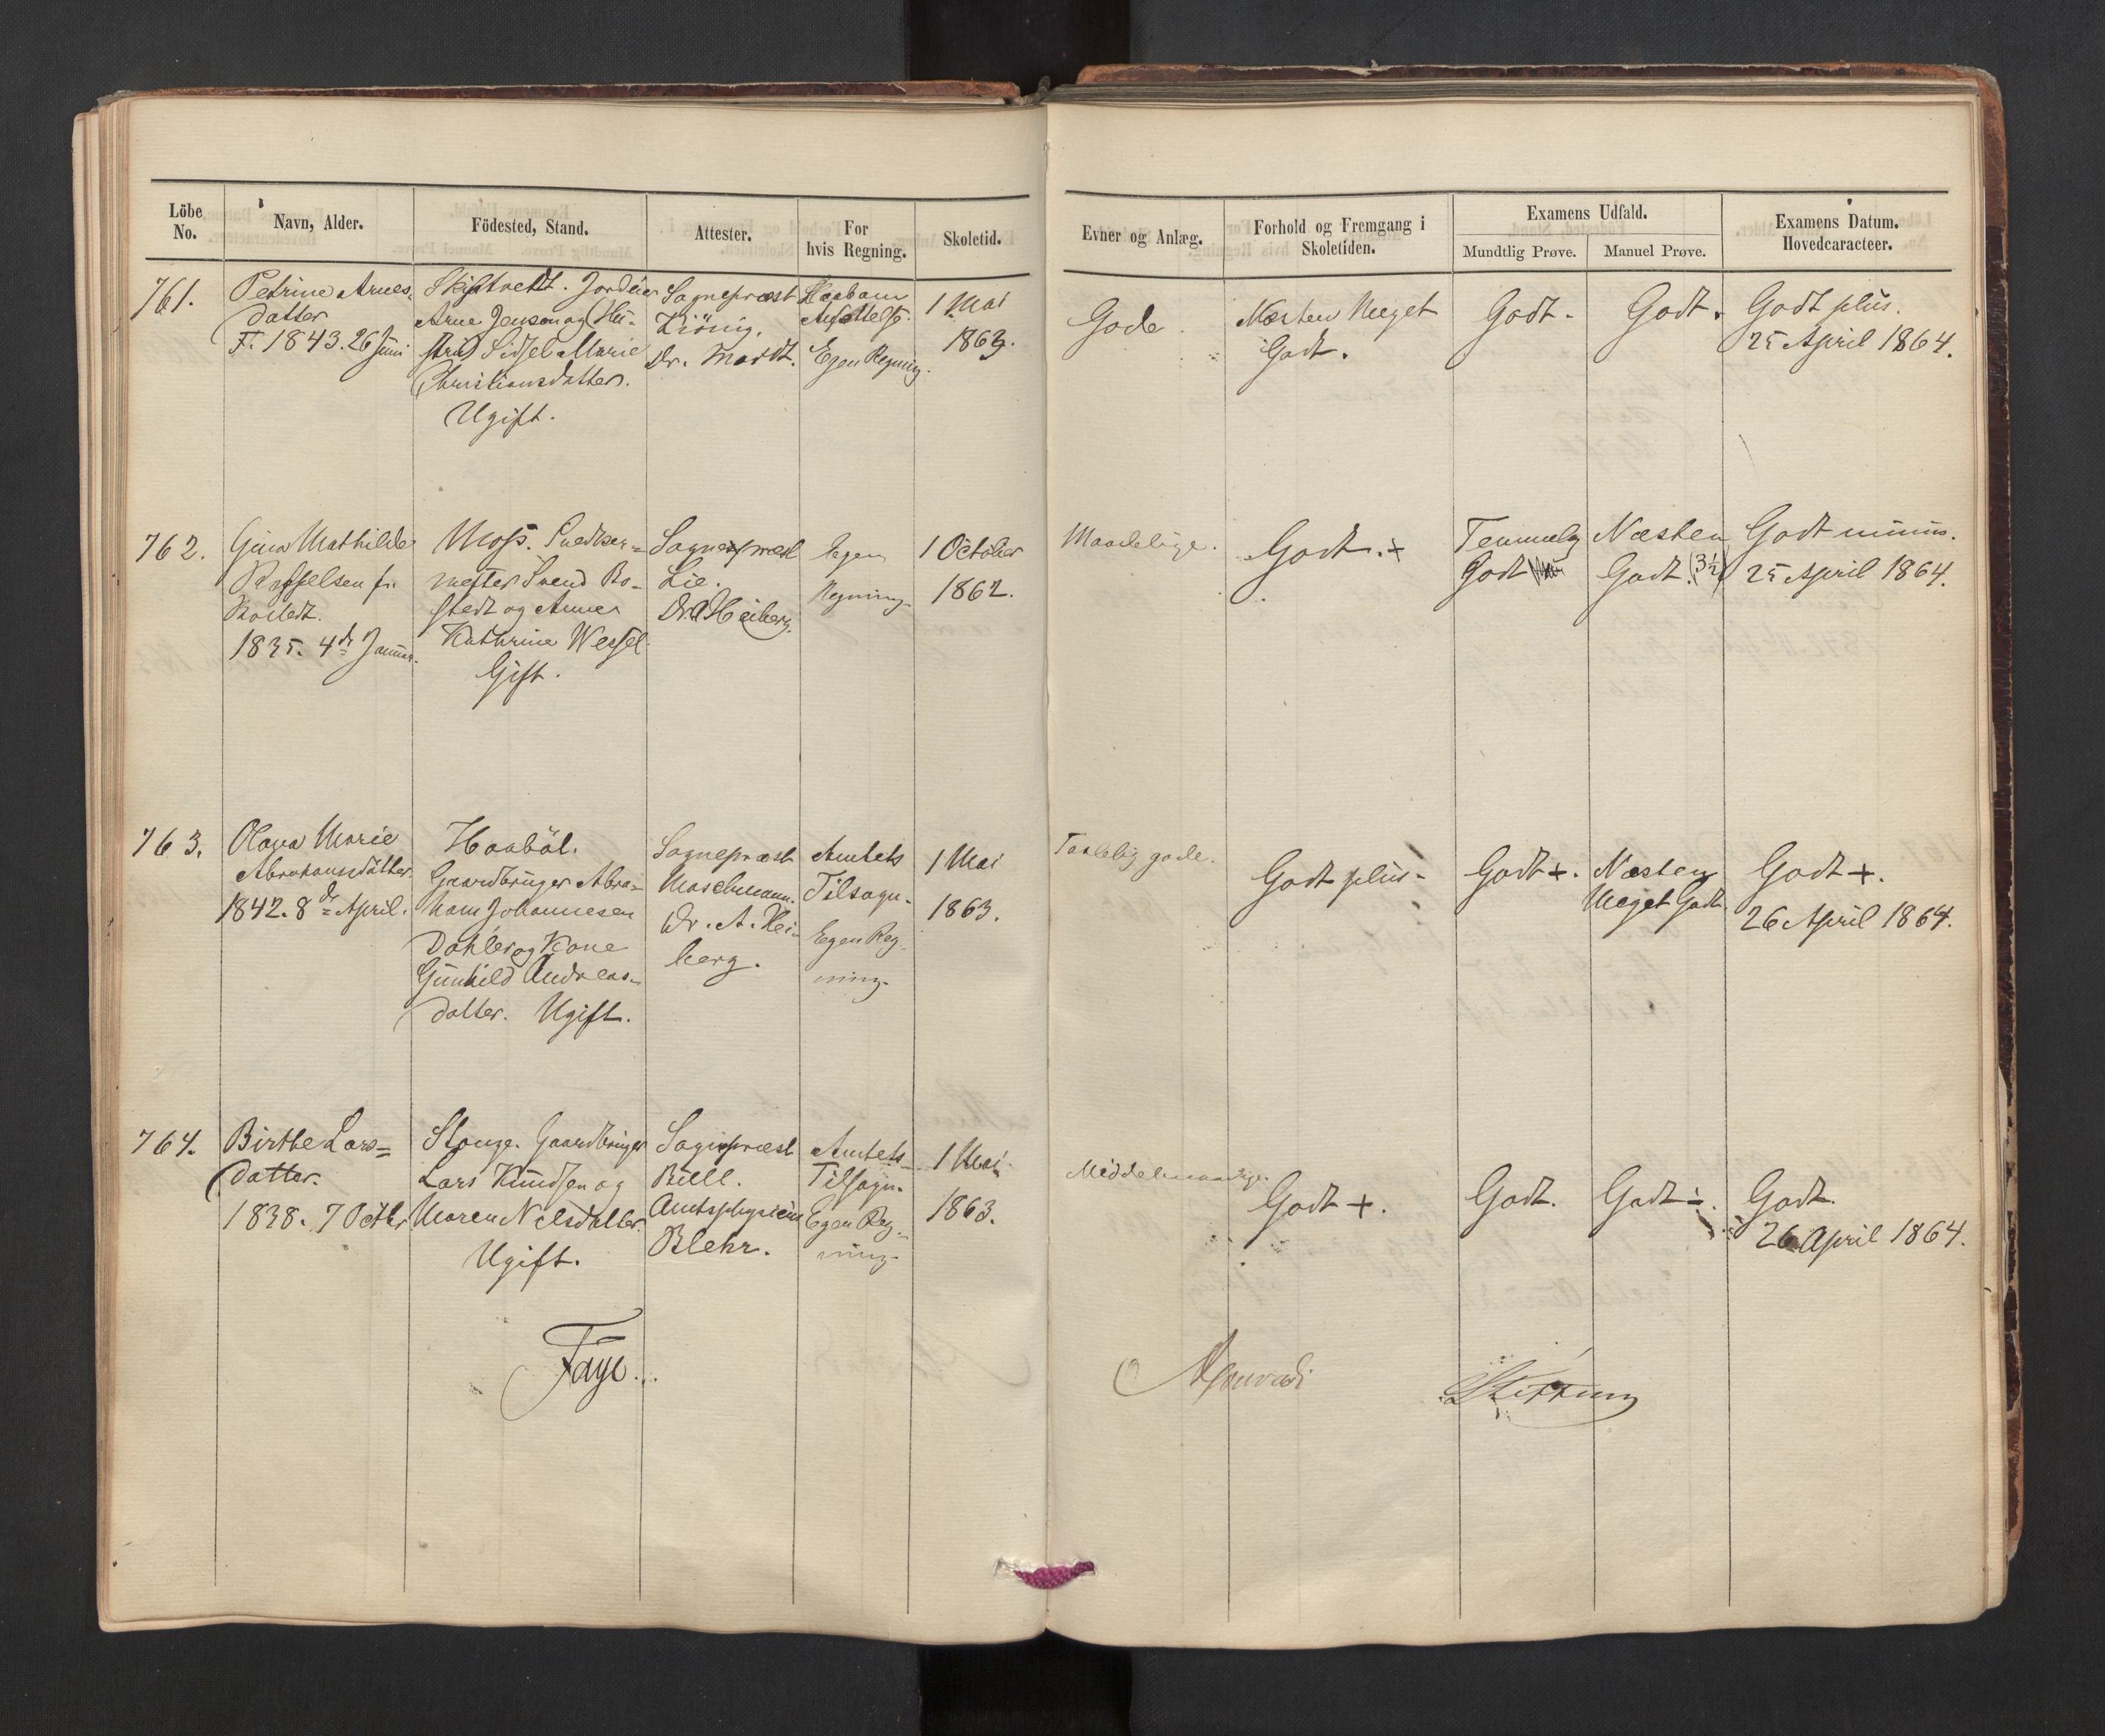 Löbe No.
Navn, Alder.
Födested, Stand.
Attester.
For hvis Regning.
Skoletid.
Evner og Anlæg.
Forhold og Fremgang i Skoletiden.
Examens Udfald.
Mundtlig Prøve.
Manuel Prøve.
Examens Datum.
Hovedcaracteer.
761.
Petrine Arnes-
datter
F. 1843. 26 Juni
Skiptvedt.
Arne Jensen og Hu-
stru Sidsel Marie
Christiansdatter.
Ugift.
Sognepræst
Dr.
Haabom
Ansættelse.
Egen Regning.
1 Mai
1863.
Gode.
Næsten Meget
Godt.
Godt.
Godt.
Godt plus.
25 April 1864.
762.
Gina Mathilde
f.
1835. 4de Januar.
Moss. Snedker=
mester Svend Ro-
stedt og Anne
Kathrine Wessel.
Gift.
Sognepræst
Lie.
Dr. A Heiberg.
Egen
Regning.
1 October
1862.
Maadelige.
Godt. +
Temmelig
Godt
Næsten
Godt. (3½)
Godt minus.
25 April 1864.
763.
Olava Marie
Abrahamsdatter.
1842. 8de April.
Haaböl.
Gaardbruger Abra-
ham Johannesen
Dahler og Kone
Gunhild Andreas-
datter. Ugift.
Sognepræst
Maschmann.
Dr. A. Hei-
berg.
Amtets
Tilsagn.
Egen Reg-
ning.
1 Mai
1863.
Taalelig gode.
Godt plus.
Godt +.
Næsten
Meget Godt.
Godt +.
26 April 1864.
764.
Birthe Lars=
datter.
1838. 7 Octbr
Stange. Gaardbruger
Lars Knudsen og
Maren Nilsdatter.
Ugift.
Sognepræst
Bull.
Amtsphysicus
Blehr.
Amtets
Tilsagn.
Egen Reg-
ning.
1 Mai
1863.
Middelmaadige.
Godt +.
Godt.
Godt ÷.
Godt.
26 April 1864.
Faye.